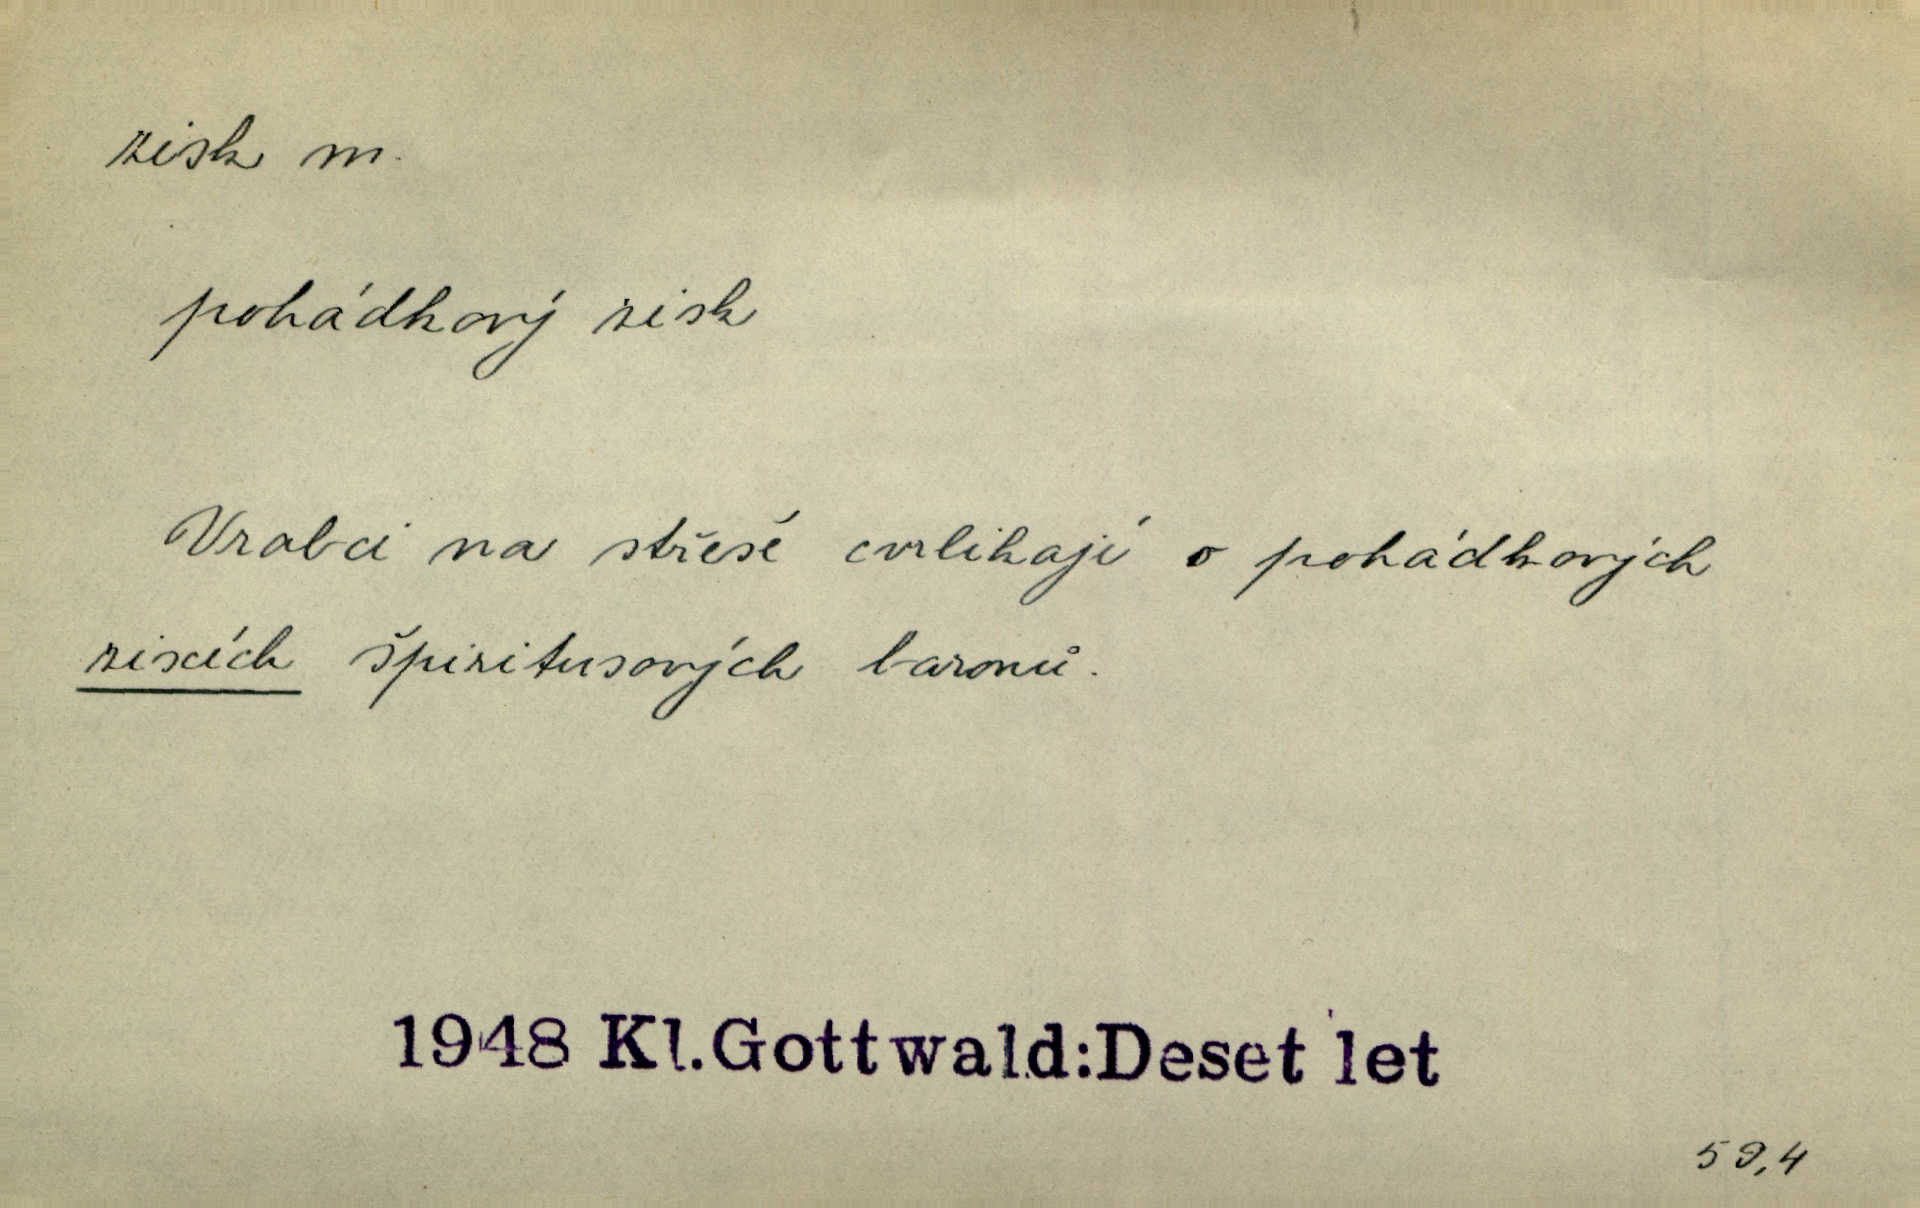 zisk m.
pohádkový zisk
Vrabci na střeše cvrlikají o pohádkových
ziscích špiritusových baronů.
1948 Kl.Gottwald:Deset let
59,4